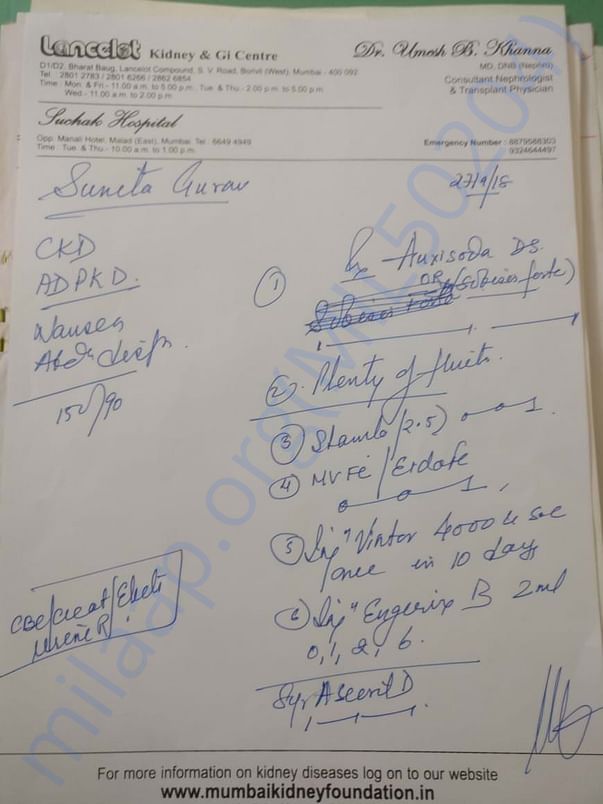 Lancelot Kidney & Gi Centre
D1/D2, Bharat Baug, Lancelot Compound, S. V. Road, Borivli (West), Mumbai - 400 092
Tel : 2801 2783 / 2801 6266 / 2862 6854
Time : Mon. & Fri - 11.00 a.m. to 5.00 p.m., Tue. & Thu - 2.00 p.m. to 5.00 p.m.
Wed. - 11.00 a.m. to 2.00 p.m.
Dr. Umesh B. Khanna
MD, DNB (Nephro)
Consultant Nephrologist
& Transplant Physician
Suchak Hospital
Opp. Manali Hotel, Malad (East), Mumbai. Tel : 6649 4949
Time : Tue. & Thu - 10.00 a.m. to 1.00 p.m.
Emergency Number : 8879568303
9324644497
Sunita Gurav
27/9/18
CKD
ADPKD.
Nausea
150/90
Rx
① Auxisoda DS.
OR (Sobisis forte)
② Plenty of fluids.
③ Stamlo (2.5) 0—0—1
④ MVFe /
0—0—1
⑤ Inj Vintor 4000 u s/c
once in 10 days
⑥ Inj Engerix B 2ml
0, 1, 2, 6.
Syr Ascoril D
1—1—1
CBC/Creat/Elect
Urine R
milaap.org
For more information on kidney diseases log on to our website
www.mumbaikidneyfoundation.in